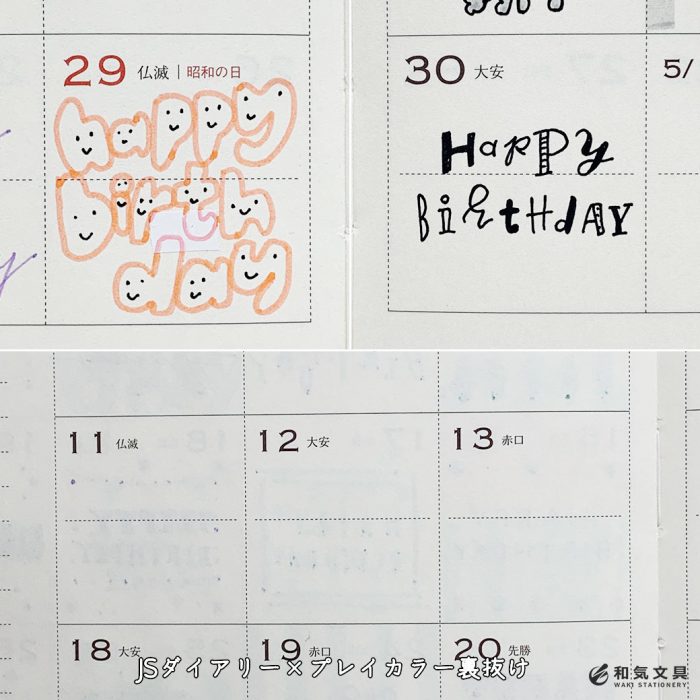 29 仏滅 | 昭和の日
happy
birth
day
30 大安
HAPPY
BiRtHdAY
5/
11 仏滅
12 大安
13 赤口
18 大安
19 赤口
20 先勝
JSダイアリー×プレイカラー裏抜け
和気文具
WAKI STATIONERY